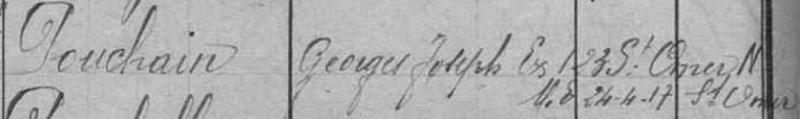 Pouchain Georges Joseph Ex 123 St Omer N
N.E 24-4-17 St Omer